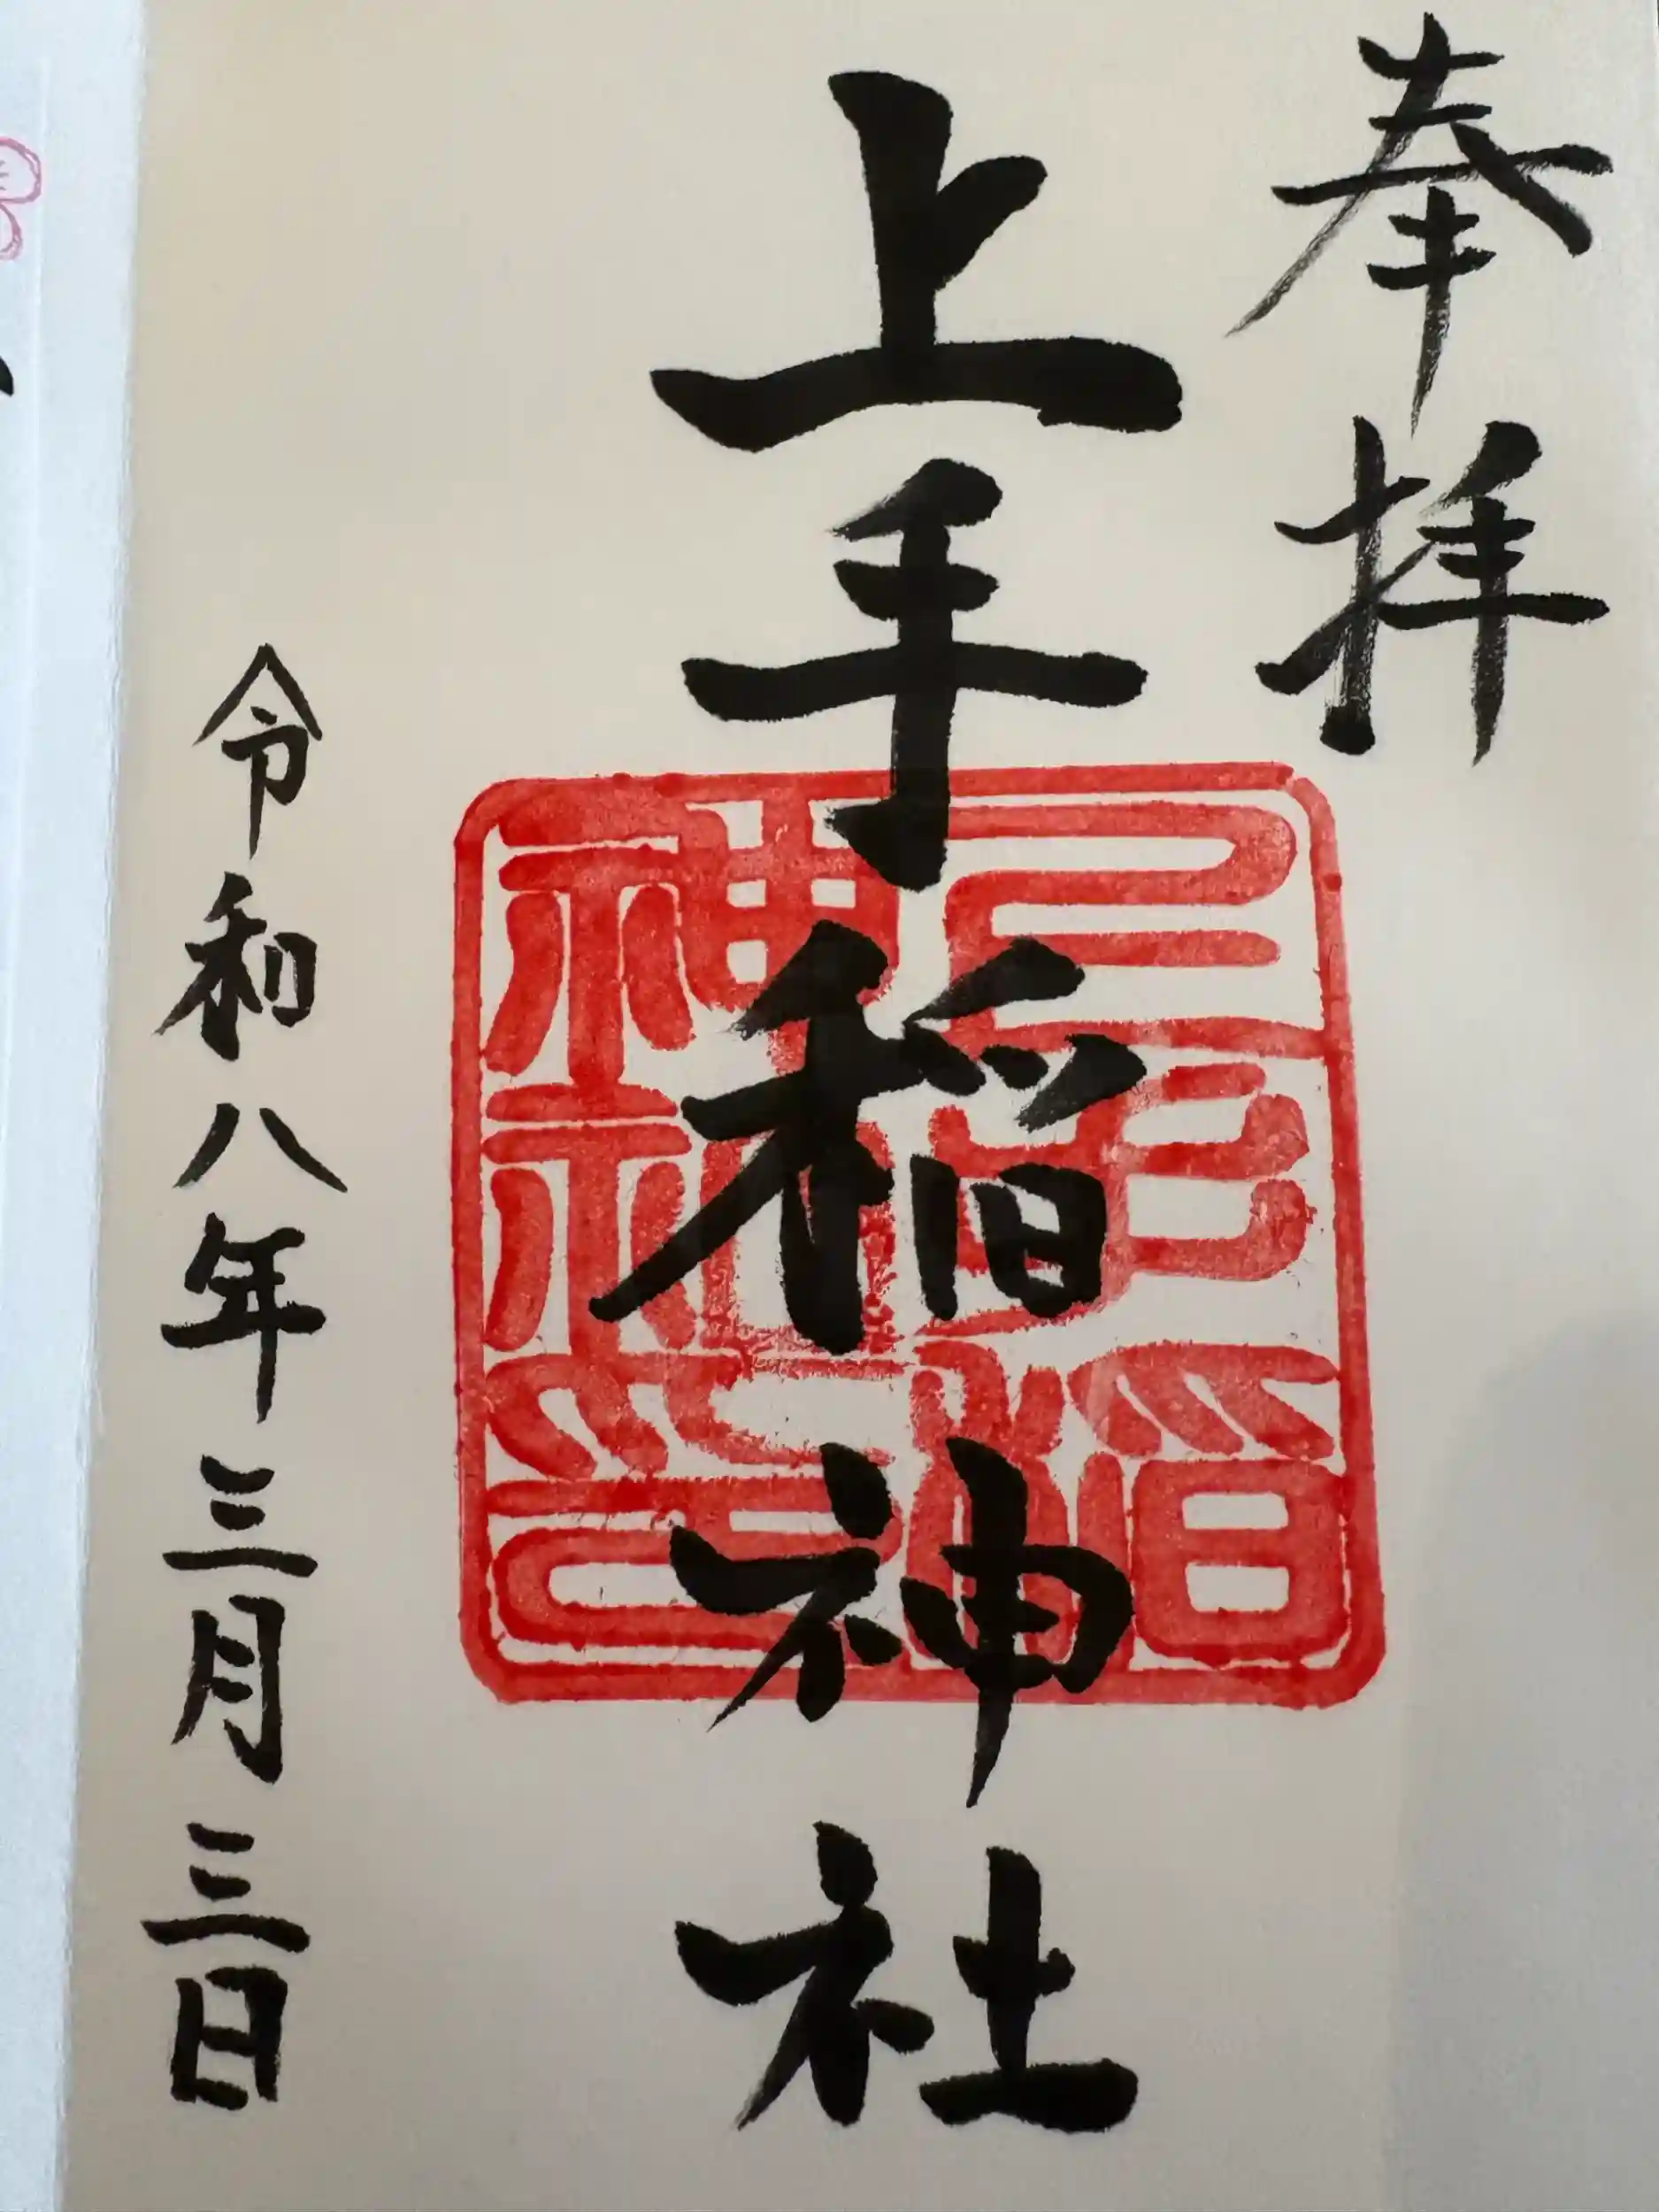 奉拝
上手稲神社
上手稲神社之印
令和八年三月三日